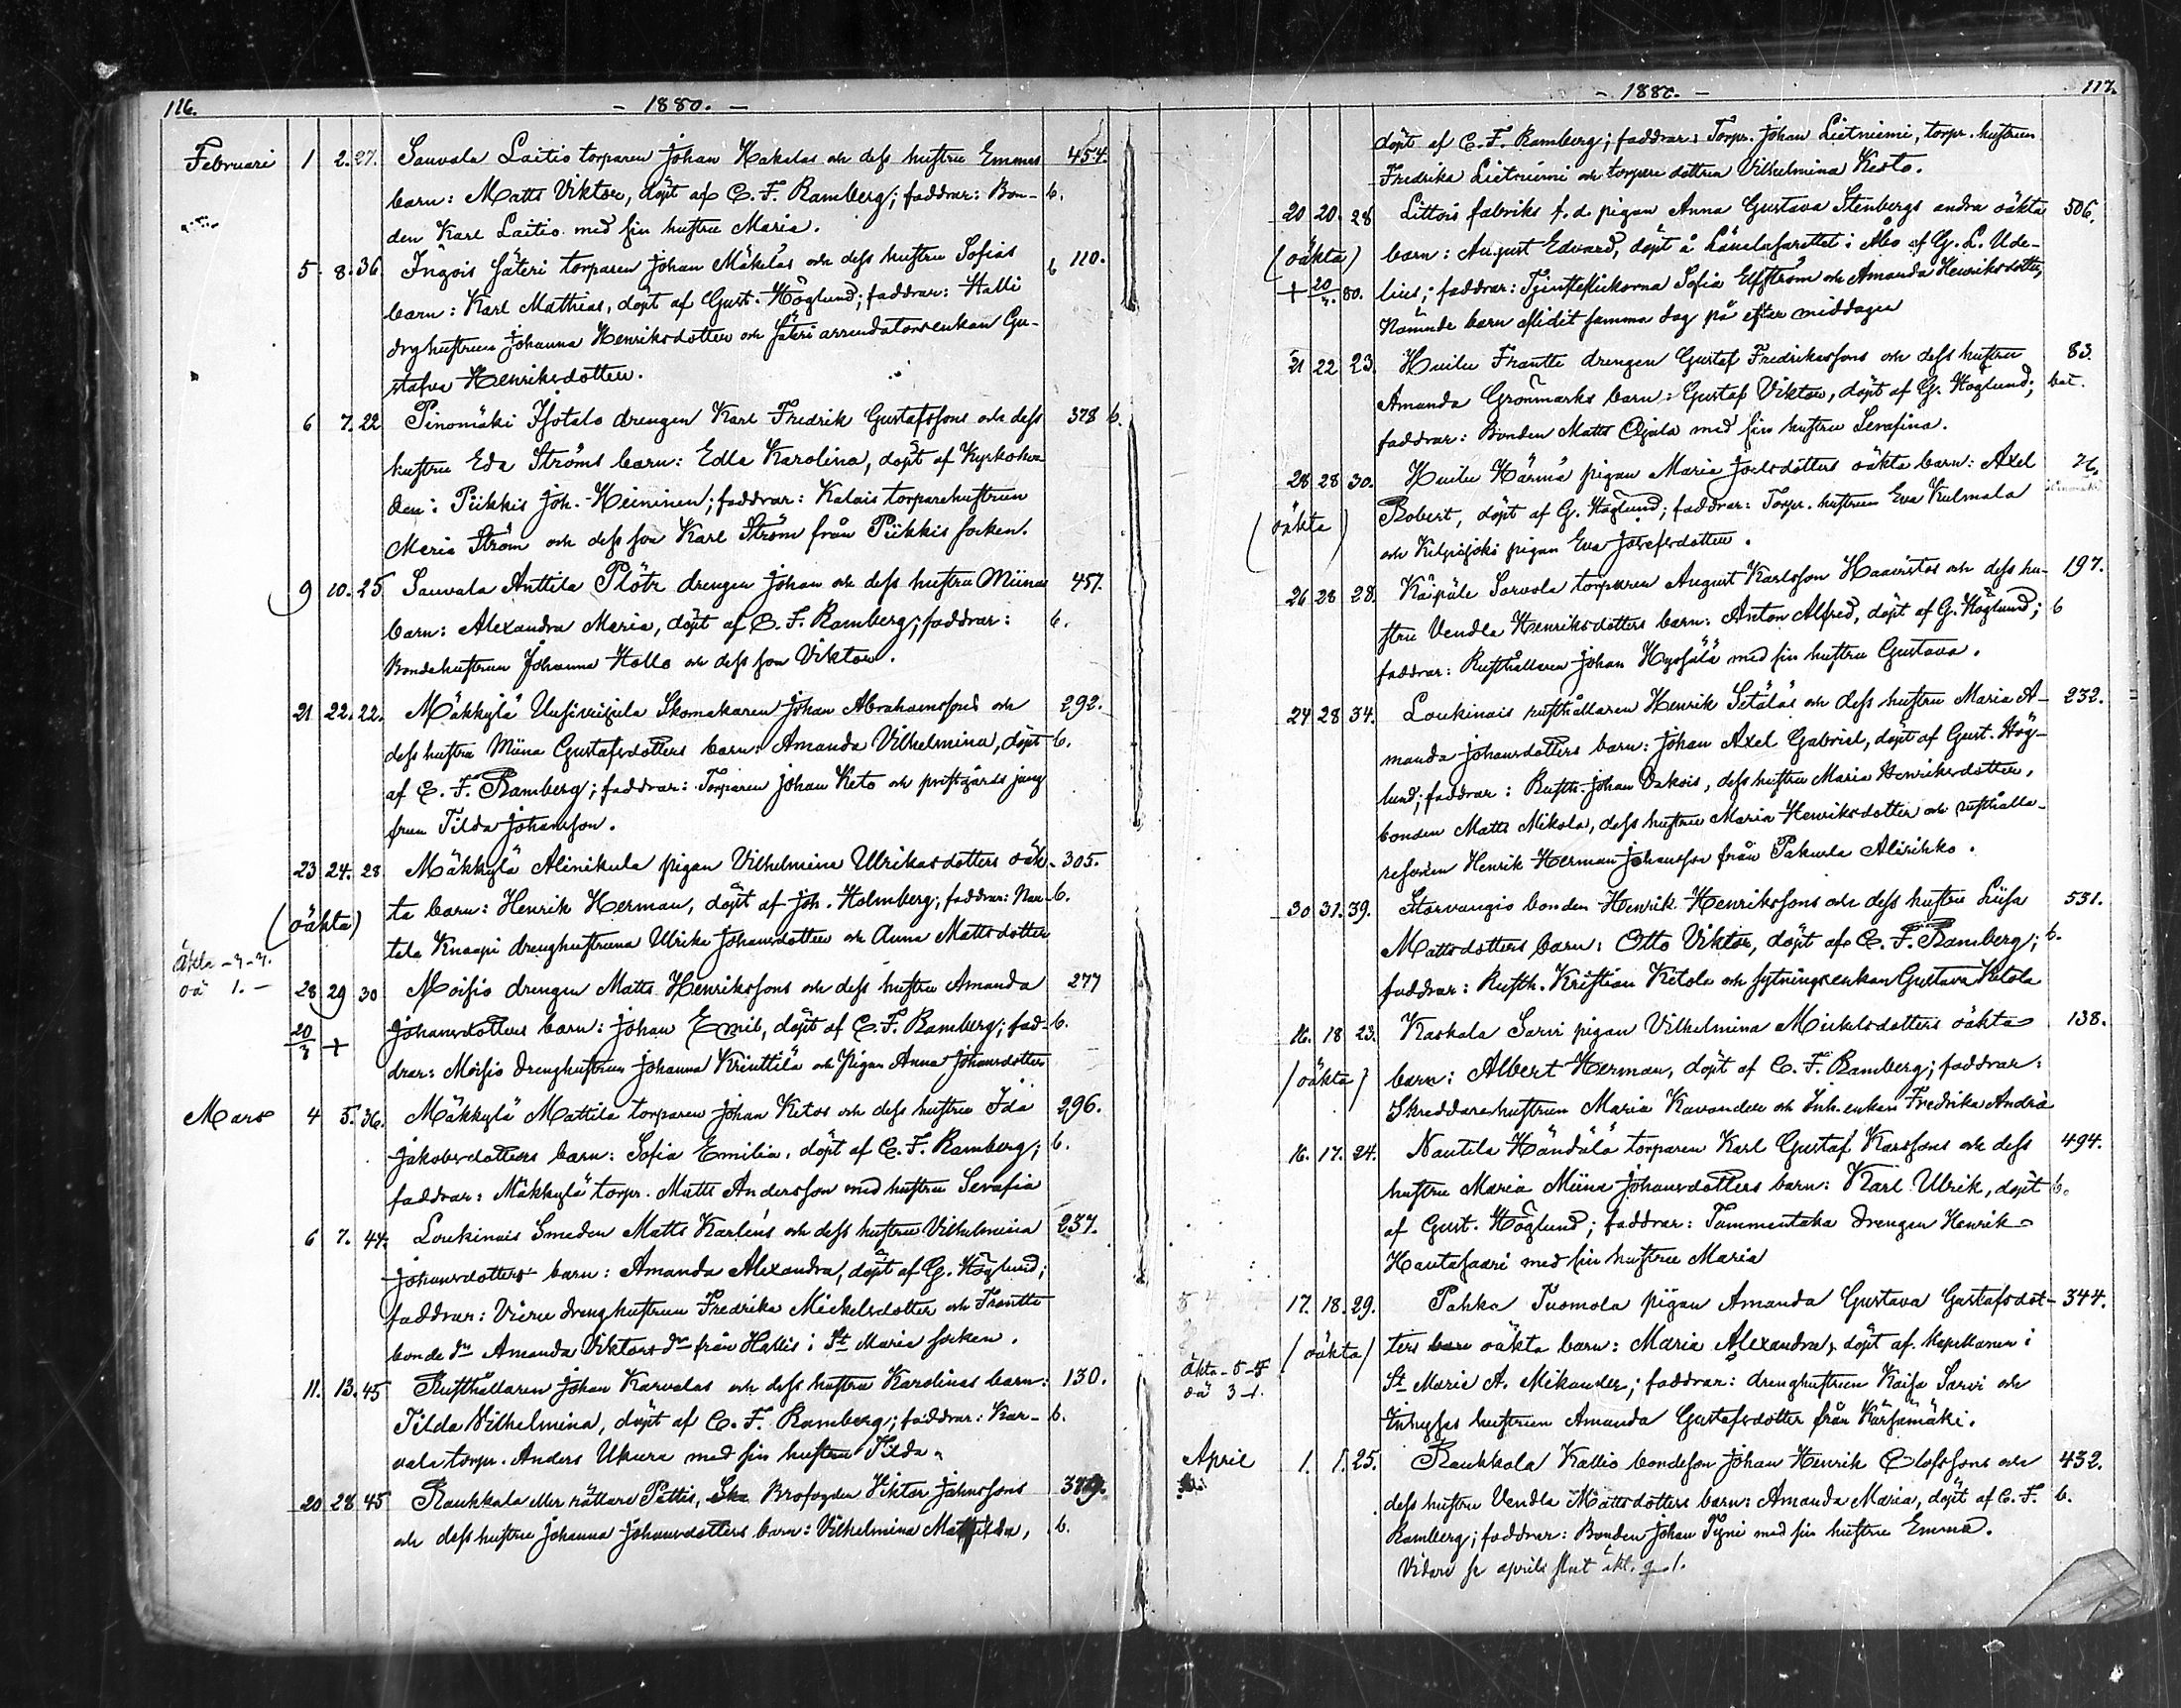 116.
- 1880. -
Februari 1 2. 27. Sauvala Laitio torparen Johan Hakalas och dess hustru Emmas 454.
barn: Matts Viktor, döpt af C. F. Ramberg; faddrar: Bon- b.
den Karl Laitio med sin hustru Maria.
5. 8. 36. Ingois Säteri torparen Johan Mäkeläs och dess hustru Sofias b 110.
barn: Karl Mathias, döpt af Gust. Höglund; faddrar: Halli
drghustrun Johanna Henriksdotter och Säteri arrendatorsenkan Gu-
stafva Henriksdotter.
6 7. 22 Pinomäki Isotalo drengen Karl Fredrik Gustafssons och dess 378 b.
hustru Eda Ströms barn: Edla Karolina, döpt af Kyrkoher-
den i Piikkis Joh. Heininen; faddrar: Kalais torparehustrun
Maria Ström och dess son Karl Ström från Piikkis socken.
9 10. 25 Sauvala Anttila Plötz drengen Johan och dess hustru Miinas 451.
barn: Alexandra Maria, döpt af C. F. Ramberg; faddrar: b.
Bondehustrun Johanna Hollo och dess son Viktor.
21 22. 22. Mäkkylä Uusiveijula Skomakaren Johan Abrahamssons och 292.
dess hustru Miina Gustafsdotters barn: Amanda Vilhelmina, döpt b.
af C. F. Ramberg; faddrar: Torparen Johan Keto och prestgårds jung
frun Tilda Johansson.
23 24. 28 Mäkkylä Alinikula pigan Vilhelmina Ulrikasdotters oäk- 305.
(oäkta) ta barn: Henrik Herman, döpt af Joh. Holmberg; faddrar: Nau- b.
tela Knaapi drenghustrurna Ulrika Johansdotter och Anna Mattsdotter
äkta -7-7.
oä 1. -
28 29 30 Moisio drengen Matts Henrikssons och dess hustru Amanda 277
20/3 + Johansdotters barn: Johan Emil, döpt af C. F. Ramberg; fad- b.
drar: Moisio drenghustrun Johanna Krinttilä och Pigan Anna Johansdotter
Mars 4 5. 36. Mäkkylä Mattila torparen Johan Ketos och dess hustru Ida 296.
Jakobsdotters barn: Sofia Emilia, döpt af C. F. Ramberg; b.
faddrar: Mäkkylä torpr. Matts Andersson med hustru Serafia
6 7. 44. Loukinais Smeden Matts Karléns och dess hustru Vilhelmina 237.
Johansdotters barn: Amanda Alexandra, döpt af G. Höglund;
faddrar: Viru drenghustrun Fredrika Mickelsdotter och Frantti
bonde dr Amanda Viktorsdr från Hallis i St Marie socken.
11. 13. 45 Rusthållaren Johan Karvalas och dess hustru Karolinas barn: 130.
Tilda Vilhelmina, döpt af C. F. Ramberg; faddrar: Kar- b.
vala torpr. Anders Ukura med sin hustru Tilda.
20 28 45 Raukkala eller rättare Pettis, Ska Brofogden Viktor Johnssons 379.
och dess hustru Johanna Johansdotters barn: Vilhelmina Mathilda, b.
- 1880. -
117.
döpt af C. F. Ramberg; faddrar: Torpr. Johan Lietniemi, torpr. hustrun
Fredrika Lietniemi och torpare dottren Vilhelmina Kesto.
20 20. 28 Littois fabriks f. d. pigan Anna Gustava Stenbergs andra oäkta 506.
(oäkta) barn: August Edvard, döpt å Länelasarettet i Åbo af G. L. Ude-
+ 20/3. 80. lius; faddrar: Tjensteflickorna Sofia Elfström och Amanda Henriksdotter,
Nämnde barn aflidit samma dag på efter middagen
21 22 23. Huilu Frantti drengen Gustaf Fredrikssons och dess hustru 83.
Amanda Grönmarks barn: Gustaf Viktor, döpt af G. Höglund; bet.
faddrar: Bonden Matts Ojala med sin hustru Serafina.
28 28 30. Huilu Härmä pigan Maria Joelsdotters oäkta barn: Axel
(oäkta) Robert, döpt af G. Höglund; faddrar: Torpr. hustrun Eva Kulmala
och Kilpijoki pigan Eva Josefsdotter.
26 28 28. Käipäle Sarvola torparen August Karlsson Haavistos och dess hu- 197.
stru Vendla Henriksdotters barn: Anton Alfred, döpt af G. Höglund; b
faddrar: Rusthållaren Johan Hyssälä med sin hustru Gustava.
24 28 34. Loukinais rusthållaren Henrik Setäläs och dess hustru Maria A- 232.
manda Johansdotters barn: Johan Axel Gabriel, döpt af Gust. Hög-
lund; faddrar: Rusth. Johan Vakois, dess hustru Maria Henriksdotter,
bonden Matts Mikola, dess hustru Maria Henriksdotter och rusthålla-
resonen Henrik Herman Johansson från Pakurla Alirikko.
30 31. 39. Storvangio bonden Henrik Henrikssons och dess hustru Liisa 531.
Mattsdotters barn: Otto Viktor, döpt af C. F. Ramberg; b.
faddrar: Rusth. Kristian Ketola och sytningsenkan Gustava Ketola
16. 18 23. Kaskala Sarvi pigan Vilhelmina Mickelsdotters oäkta 138.
(oäkta) barn: Albert Herman, döpt af C. F. Ramberg; faddrar:
Skreddarehustrun Maria Kavander och Inh. enkan Fredrika Andrä
16. 17. 24. Nautela Händälä torparen Karl Gustaf Karssons och dess 494.
hustru Maria Miina Johansdotters barn: Karl Ulrik, döpt b.
af Gust. Höglund; faddrar: Tammentaka drengen Henrik
Hautasaari med sin hustru Maria
17. 18. 29. Pahka Tuomola pigan Amanda Gustava Gustafsdot- 344.
(oäkta) ters barn oäkta barn: Maria Alexandra, döpt af Kapellanen i
äkta -5-5
oä 3-1.
St Marie A. Mikander; faddrar: drenghustrun Kaisa Sarvi och
Inhyses hustrun Amanda Gustafsdotter från Kärsämäki.
April 1. 1. 25. Raukkala Kallio bondeson Johan Henrik Olofssons och 432.
dess hustru Vendla Mattsdotters barn: Amanda Maria, döpt af C. F. b.
Ramberg; faddrar: Bonden Johan Tyni med sin hustru Emma.
Vidare se aprils slut äkt. g. 1.